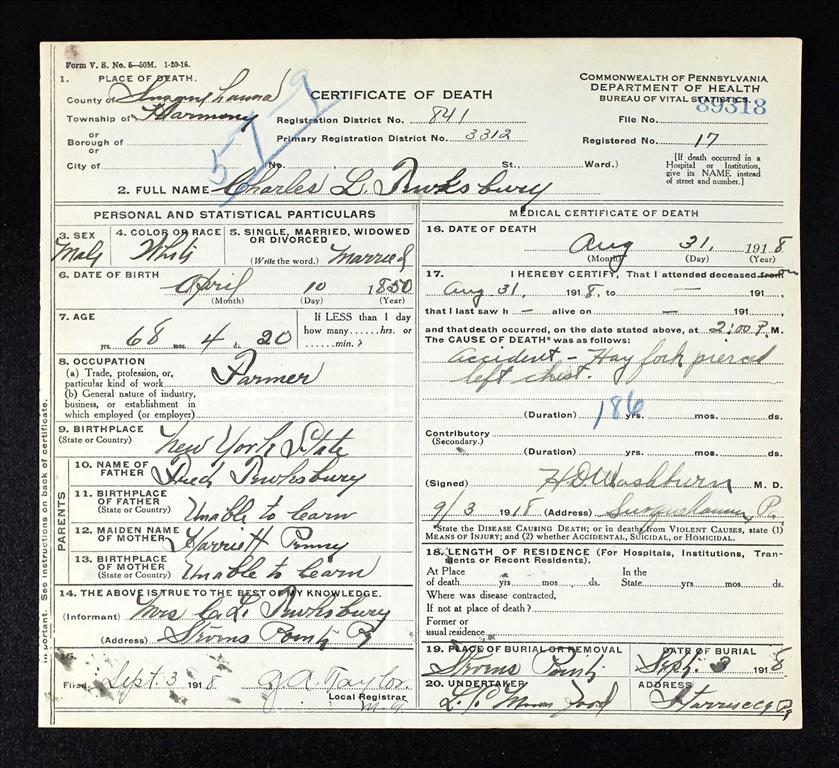 Form V. S. No. 5—50M. 1-20-16.
1. PLACE OF DEATH.
County of Susquehanna
Township of Harmony
or
Borough of
or
City of
CERTIFICATE OF DEATH
Registration District No. 841
Primary Registration District No. 3312
No. , St., Ward.)
57-9
COMMONWEALTH OF PENNSYLVANIA
DEPARTMENT OF HEALTH
BUREAU OF VITAL STATISTICS.
File No. 89318
Registered No. 17
[If death occurred in a
Hospital or Institution,
give its NAME instead
of street and number.]
2. FULL NAME Charles L. Tewksbury
PERSONAL AND STATISTICAL PARTICULARS
3. SEX
Male
4. COLOR OR RACE
White
5. SINGLE, MARRIED, WIDOWED
OR DIVORCED
(Write the word.) Married
6. DATE OF BIRTH
April 10 1850
(Month) (Day) (Year)
7. AGE
68 yrs. 4 mos. 20 d.
If LESS than 1 day
how many......hrs. or
......min.?
8. OCCUPATION
(a) Trade, profession, or,
particular kind of work Farmer
(b) General nature of industry,
business, or establishment in
which employed (or employer)
9. BIRTHPLACE
(State or Country) New York State
PARENTS
10. NAME OF
FATHER Tewksbury
11. BIRTHPLACE
OF FATHER
(State or Country) Unable to learn
12. MAIDEN NAME
OF MOTHER Harriett
13. BIRTHPLACE
OF MOTHER
(State or Country) Unable to learn
14. THE ABOVE IS TRUE TO THE BEST OF MY KNOWLEDGE.
(Informant) Mrs C. L. Tewksbury
(Address) Pa
15.
Filed Sept. 3 1918
Taylor
Local Registrar
MEDICAL CERTIFICATE OF DEATH
16. DATE OF DEATH
Aug 31, 1918
(Month) (Day) (Year)
17. I HEREBY CERTIFY, That I attended deceased from
Aug. 31, 1918, to — 191
that I last saw h — alive on — 191
and that death occurred, on the date stated above, at 2:00 P. M.
The CAUSE OF DEATH* was as follows:
Accident - Hay fork pierced
left chest.
(Duration) yrs. mos. ds.
186
Contributory
(Secondary.)
(Duration) yrs. mos. ds.
(Signed) H D Washburn M. D.
9/3 1918 (Address) Susquehanna, Pa.
*State the DISEASE CAUSING DEATH; or in deaths from VIOLENT CAUSES, state (1)
MEANS OF INJURY; and (2) whether ACCIDENTAL, SUICIDAL, or HOMICIDAL.
18. LENGTH OF RESIDENCE (For Hospitals, Institutions, Transients
or Recent Residents).
At Place
of death yrs. mos. ds.
In the
State yrs. mos. ds.
Where was disease contracted,
If not at place of death?
Former or
usual residence
19. PLACE OF BURIAL OR REMOVAL
DATE OF BURIAL
Sept. 3 1918
20. UNDERTAKER
ADDRESS
Starrucca Pa
important. See instructions on back of certificate.